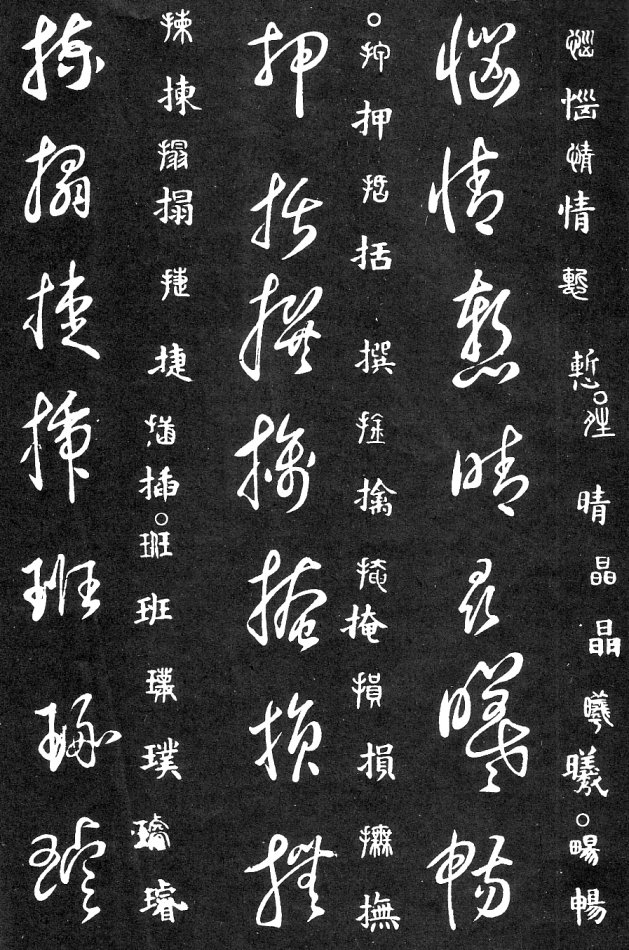 惱惱情情慙慙晴晴晶晶曦曦暢暢
惱情慙晴晶曦暢
押押括括撰擒擒掩掩損損撫撫
押括撰擒掩損撫
揀揀搨搨捷捷插插班班璞璞璿璿
揀搨捷插班璞璿